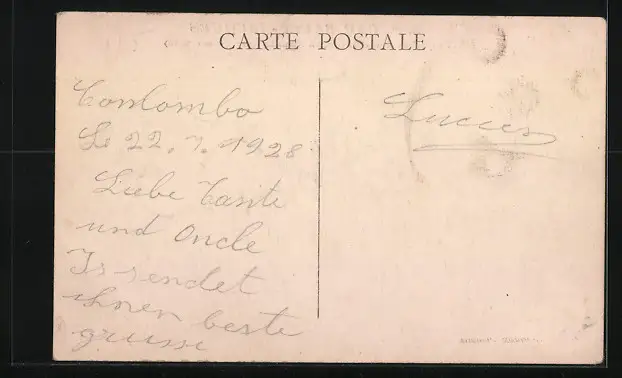 CARTE POSTALE
Conlombo
Le 22. 7. 1928
Liebe Tante
und Oncle
Is sendet
ihnen beste
grusse
Lucien